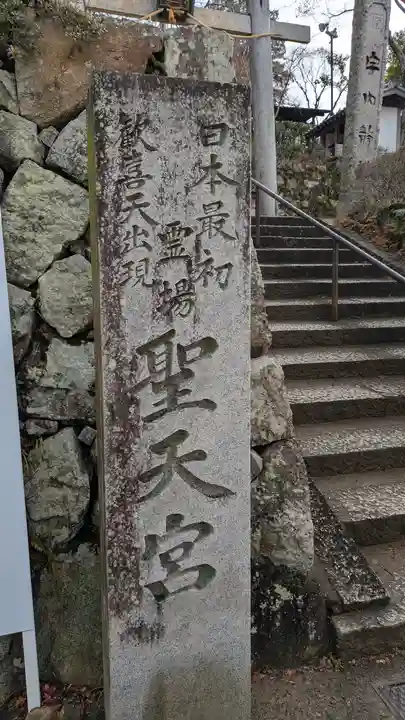 日本最初
歓喜天出現
霊場
聖天宮